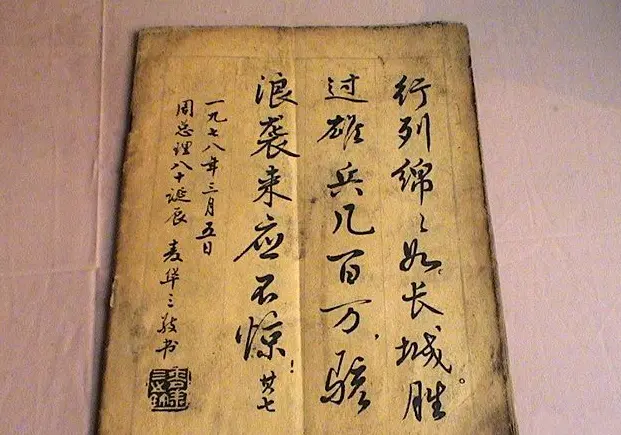 行列绵〻如长城。胜
过雄兵几百万，骇
浪袭来应不惊！廿七
一九七八年三月五日
周总理八十诞辰 麦华三敬书